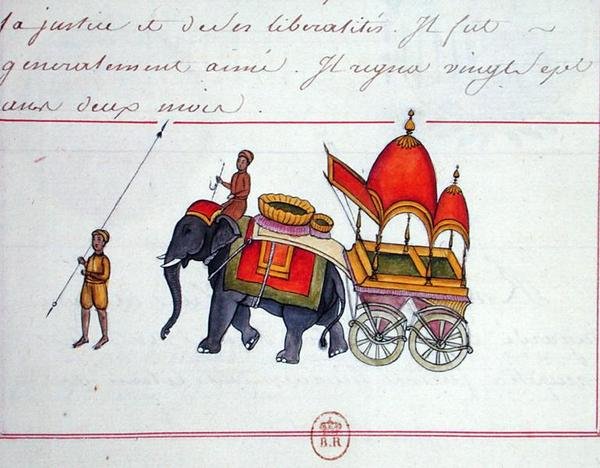 la justice et de ses liberalités. Il fut ~
generalement aimé. Il regna vingt sept
ans deux mois.
B.R